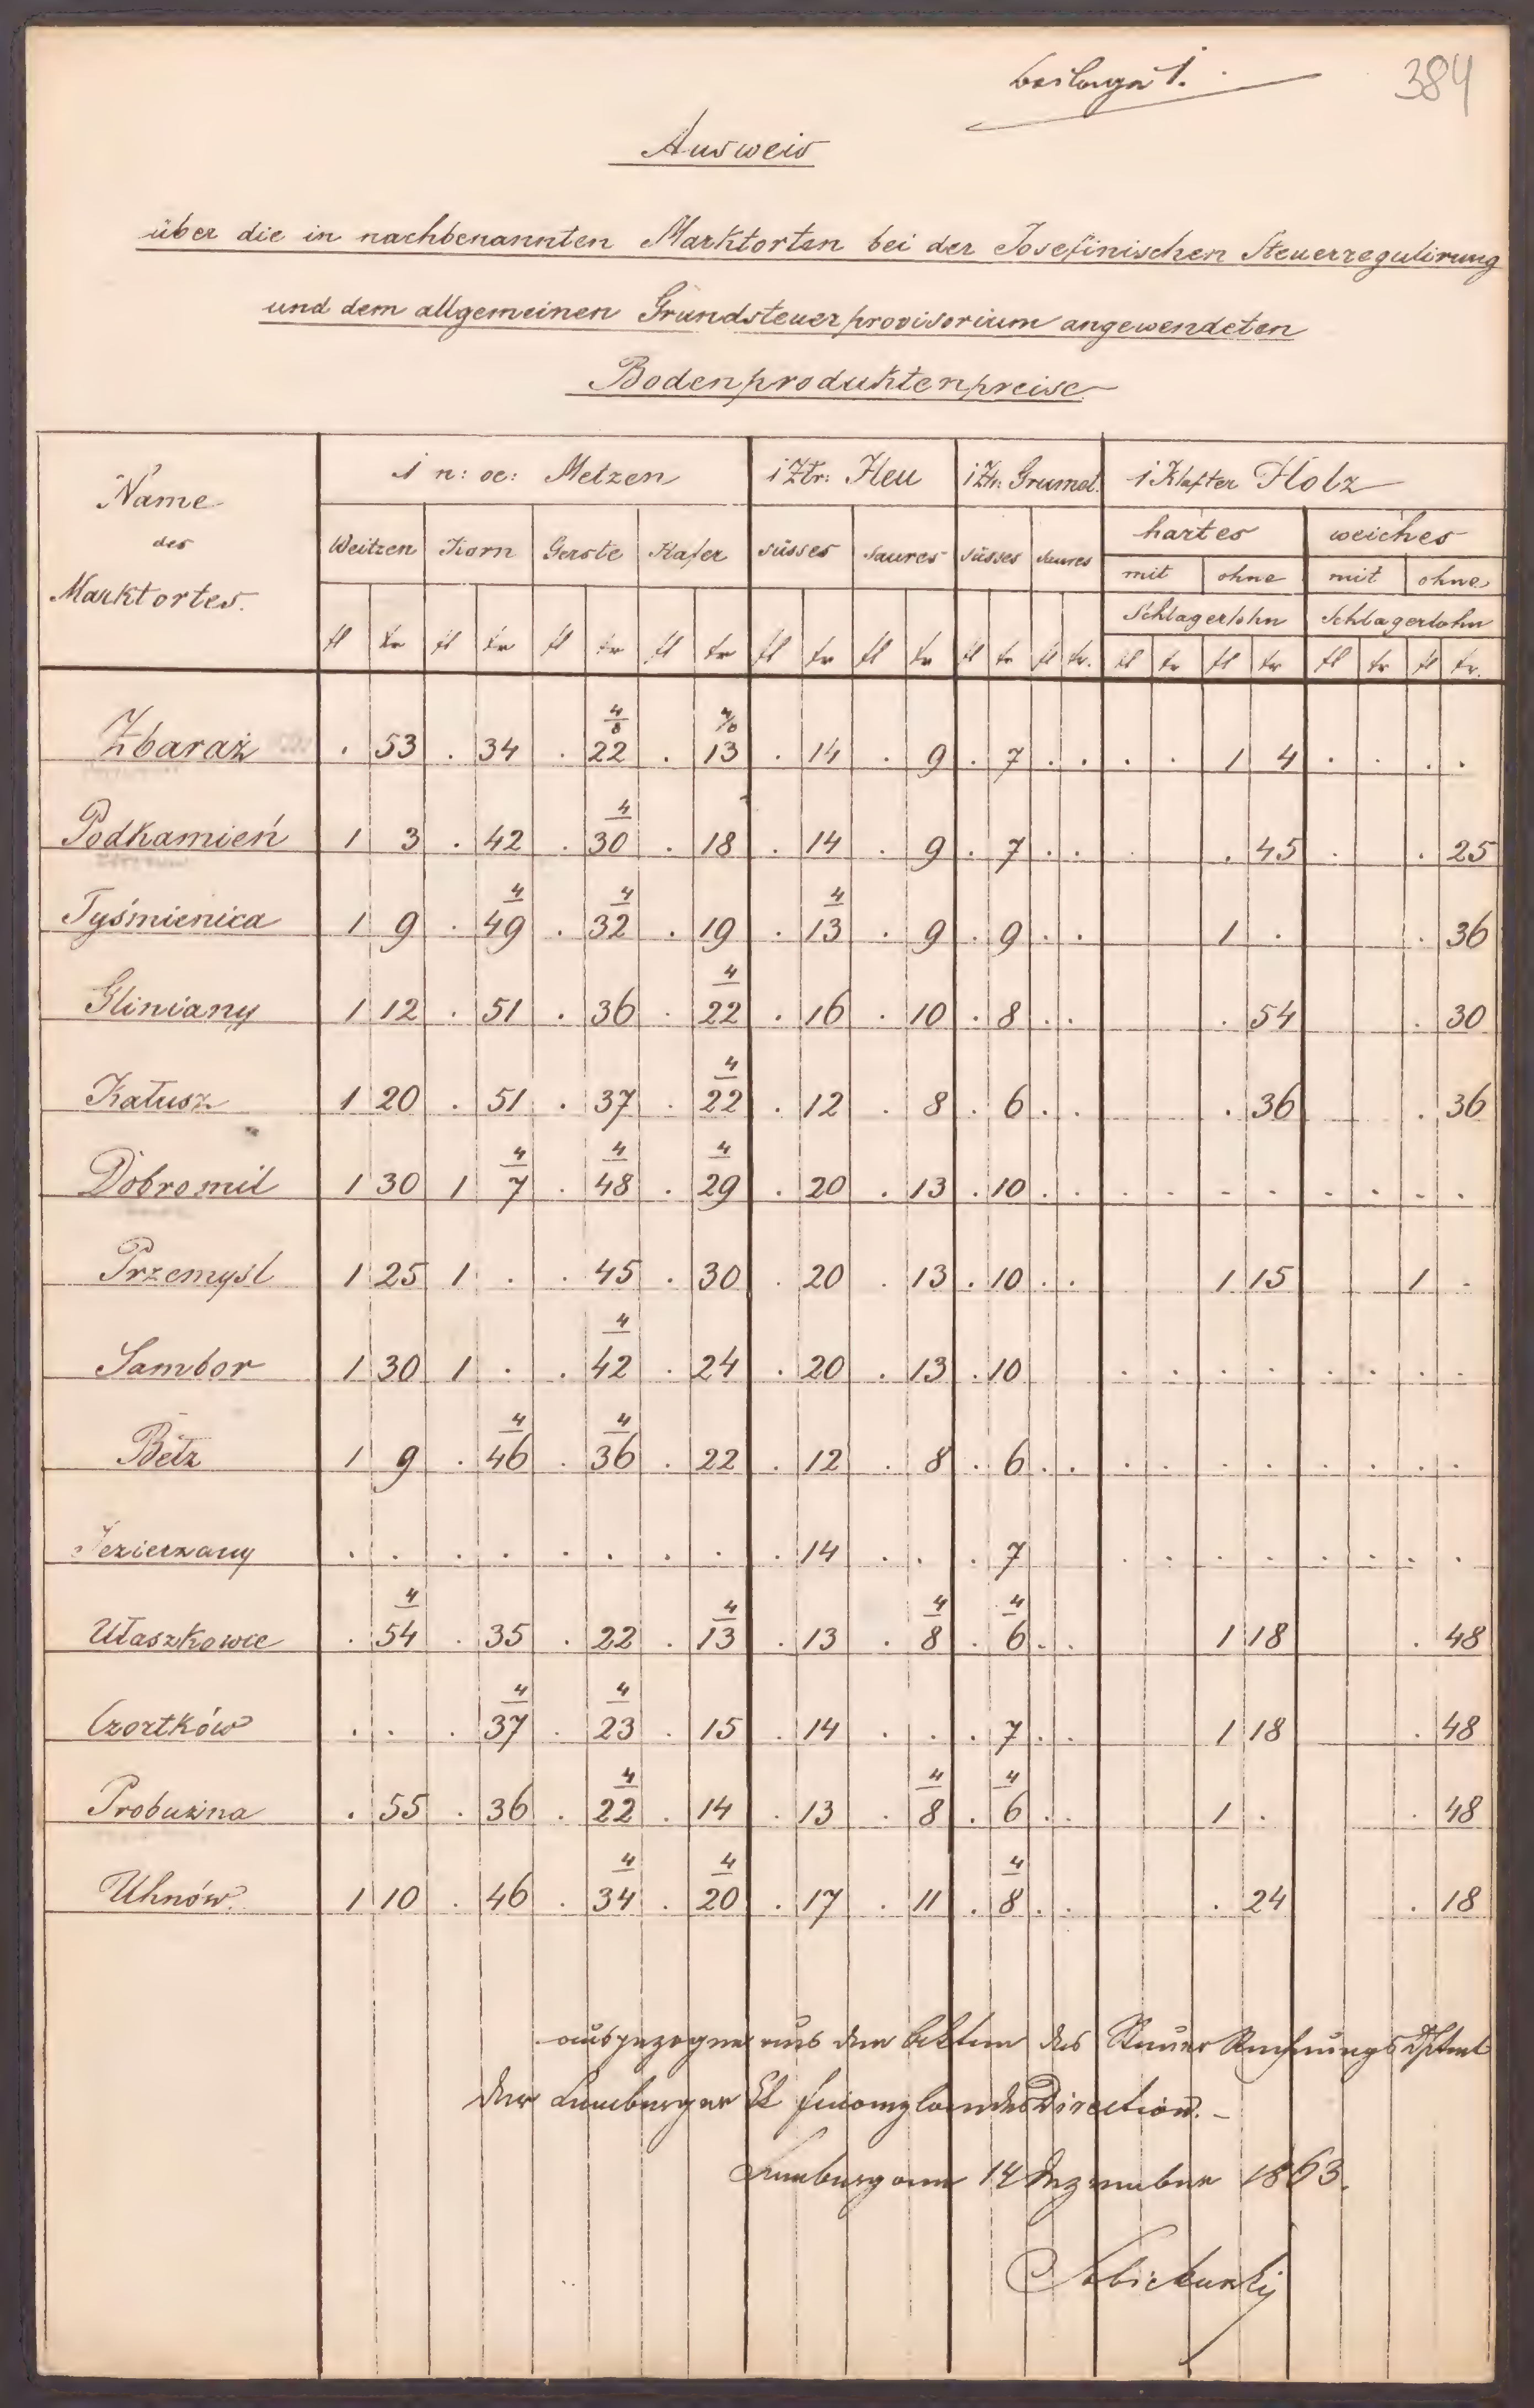 Beilage 1.
384
Ausweis
über die in nachbenannten Marktorten bei der Josefinischen Steuerregulirung
und dem allgemeinen Grundsteuerprovisorium angewendeten
Bodenproduktenpreise
Name des Marktortes.
1 n: oe: Metzen 1 Ztr: Heu 1 Ztr: Grumet. 1 Klafter Holz
hartes weiches
Weitzen Korn Gerste Hafer süsses saures süsses saures
mit ohne mit ohne
Schlagerlohn Schlagerlohn
fl kr fl kr fl kr fl kr fl kr fl kr fl kr fl kr. fl kr fl kr fl kr fl kr.
4/8 4/8
Zbaraż . 53 . 34 . 22 . 13 . 14 . 9 . 7 . . . . 1 4 . . . .
4
Podkamień 1 3 . 42 . 30 . 18 . 14 . 9 . 7 . . . . 45 . . 25
4 4 4
Tyśmienica 1 9 . 49 . 32 . 19 . 13 . 9 . 9 . . 1 . . 36
4
Gliniany 1 12 . 51 . 36 . 22 . 16 . 10 . 8 . . . 54 . 30
4
Kałusz 1 20 . 51 . 37 . 22 . 12 . 8 . 6 . . . 36 . 36
4 4 4
Dobromil 1 30 1 7 . 48 . 29 . 20 . 13 . 10 . . . . . . . . . .
Przemysl 1 25 1 . . 45 . 30 . 20 . 13 . 10 . . 1 15 1 .
4
Sambor 1 30 1 . . 42 . 24 . 20 . 13 . 10 . . . . . . . .
4 4
Bełz 1 9 . 46 . 36 . 22 . 12 . 8 . 6 . . . . . . . . . .
Jezierzany . . . . . . . . . 14 . . . 7 . . . . . . . .
4 4 4 4
Ułaszkowce . 54 . 35 . 22 . 13 . 13 . 8 . 6 . . 1 18 . 48
4 4
Czortków . . . 37 . 23 . 15 . 14 . . . 7 . . 1 18 . 48
4 4 4
Probużna . 55 . 36 . 22 . 14 . 13 . 8 . 6 . . 1 . . 48
4 4 4
Uhnów. 1 10 . 46 . 34 . 20 . 17 . 11 . 8 . . . 24 . 18
ausgezogen aus den Akten des Steuer Rechnungs Dptmt
der Lemberger kk Finanzlandes Direction. –
Lemberg am 14 Dezember 1863.